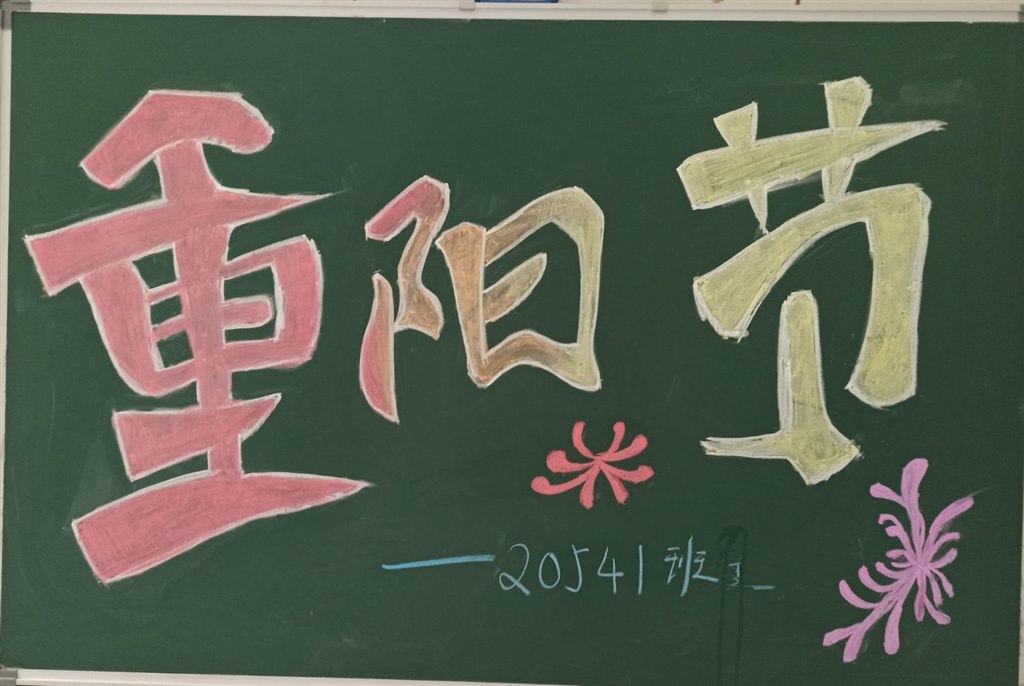 重阳节
—20541班